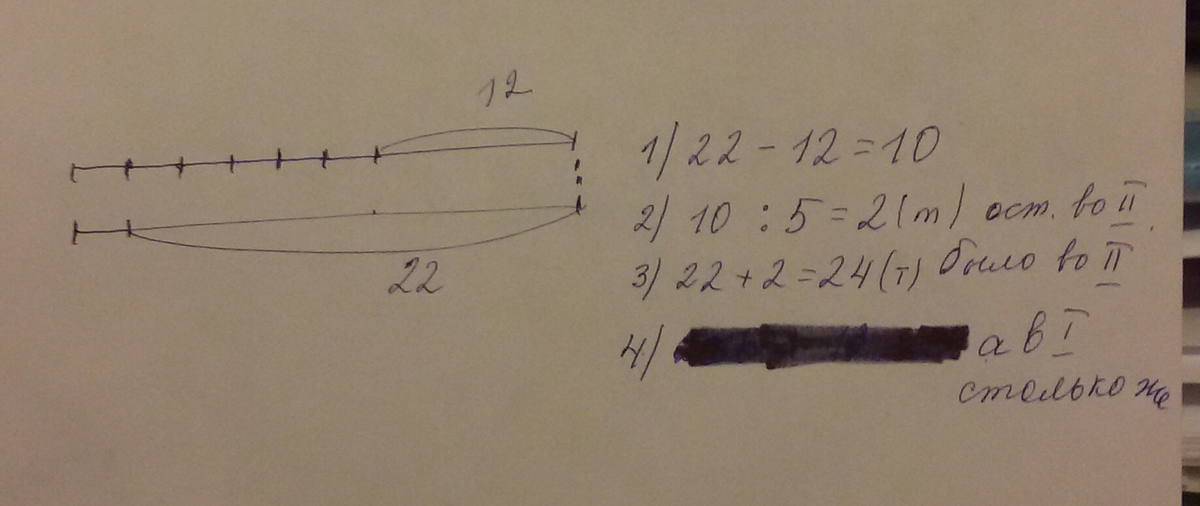 12
22
1) 22 - 12 = 10
2) 10 : 5 = 2 (т) ост. во II.
3) 22 + 2 = 24 (т) было во II
4) а в I
столько же